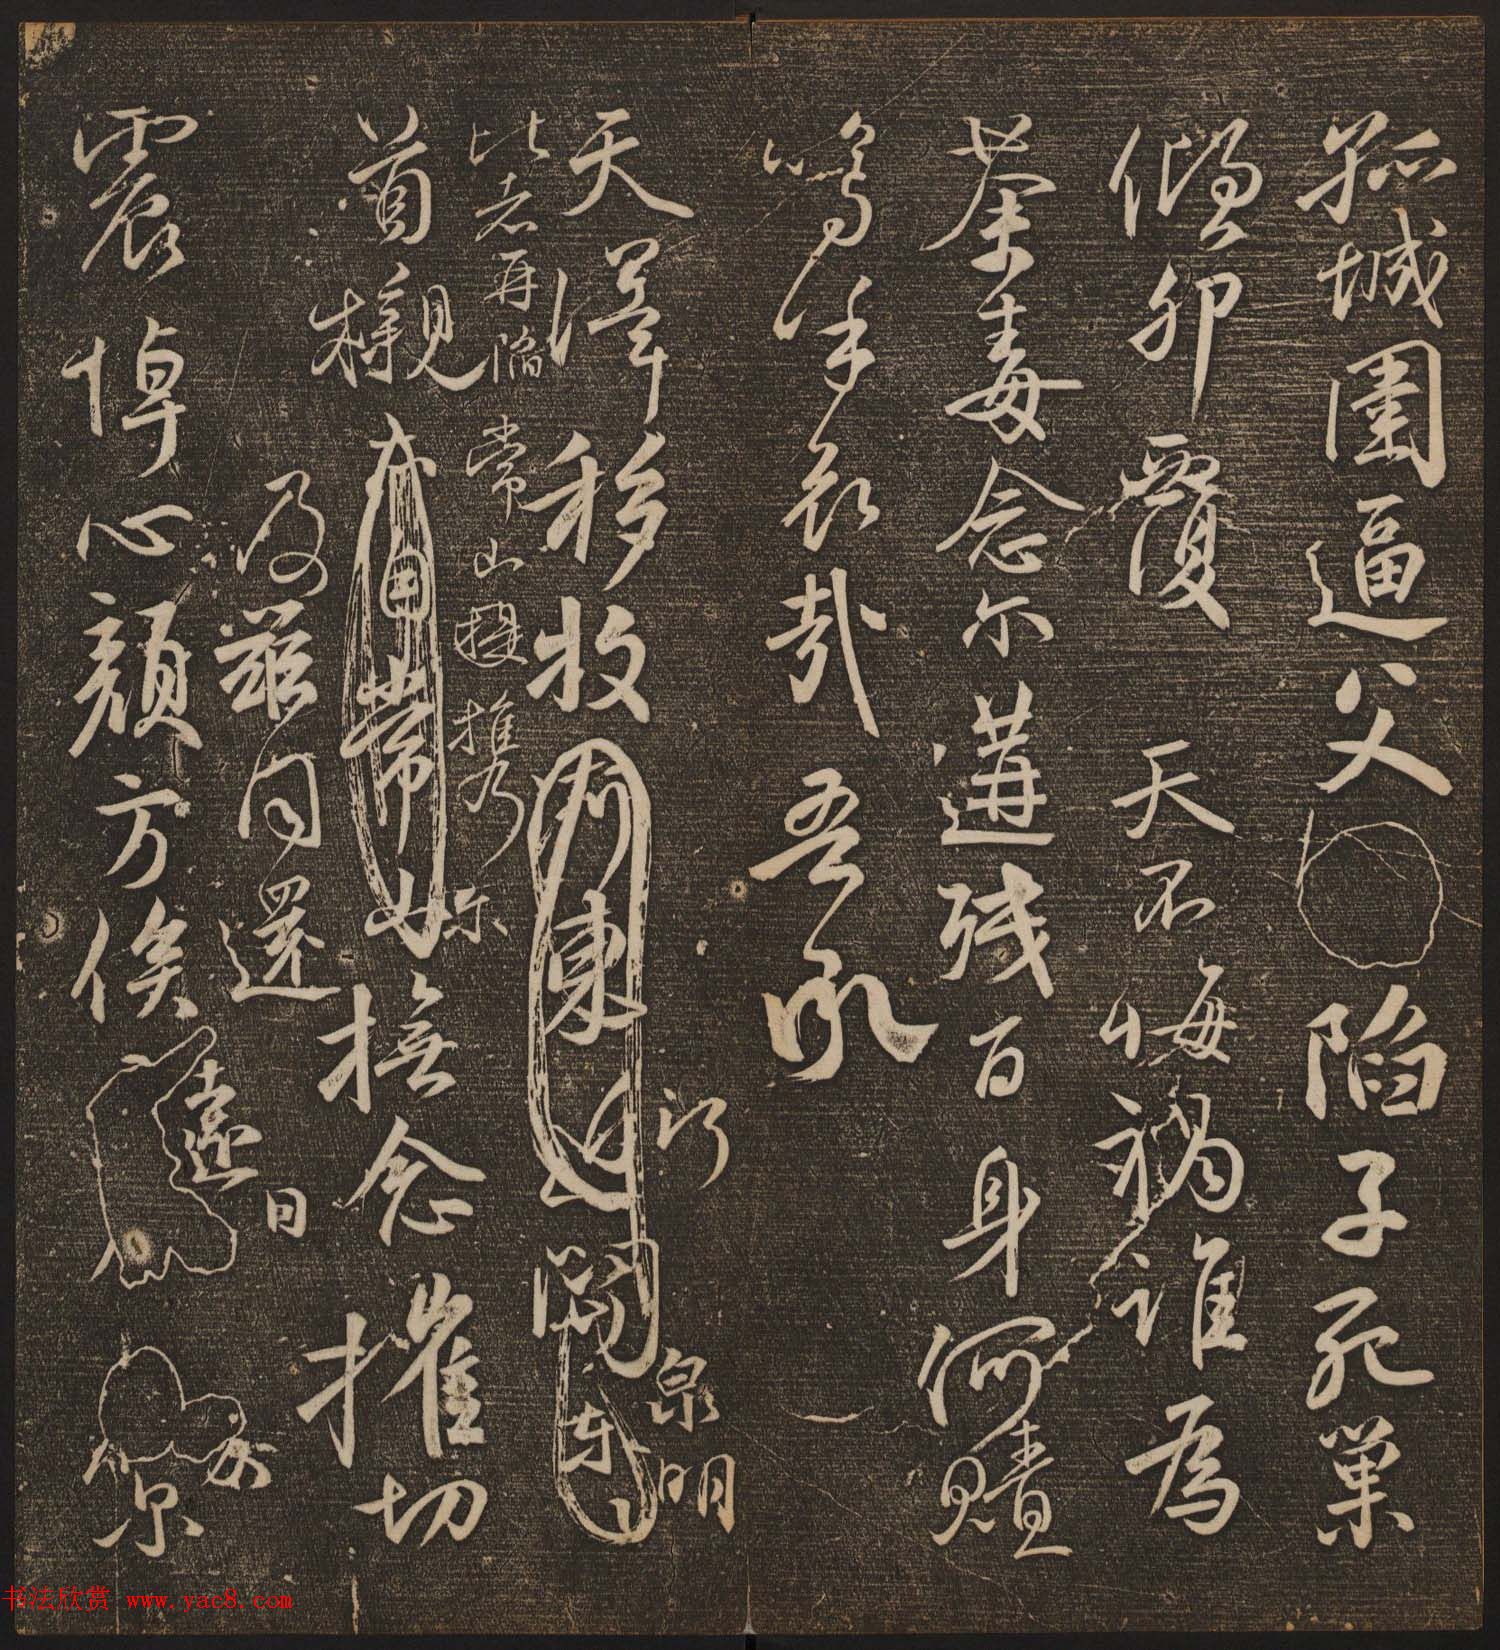 孤城圍逼父陷子死巢
傾卵覆天不悔禍誰為
荼毒念尔遘殘百身何贖
嗚乎哀哉吾承
天澤移牧河東近河關東泉明
比者再陷常山提攜尔
首櫬亦自常山撫念摧切
及茲同還
震悼心顏方俟遠日卜尔
书法欣赏 www.yac8.com